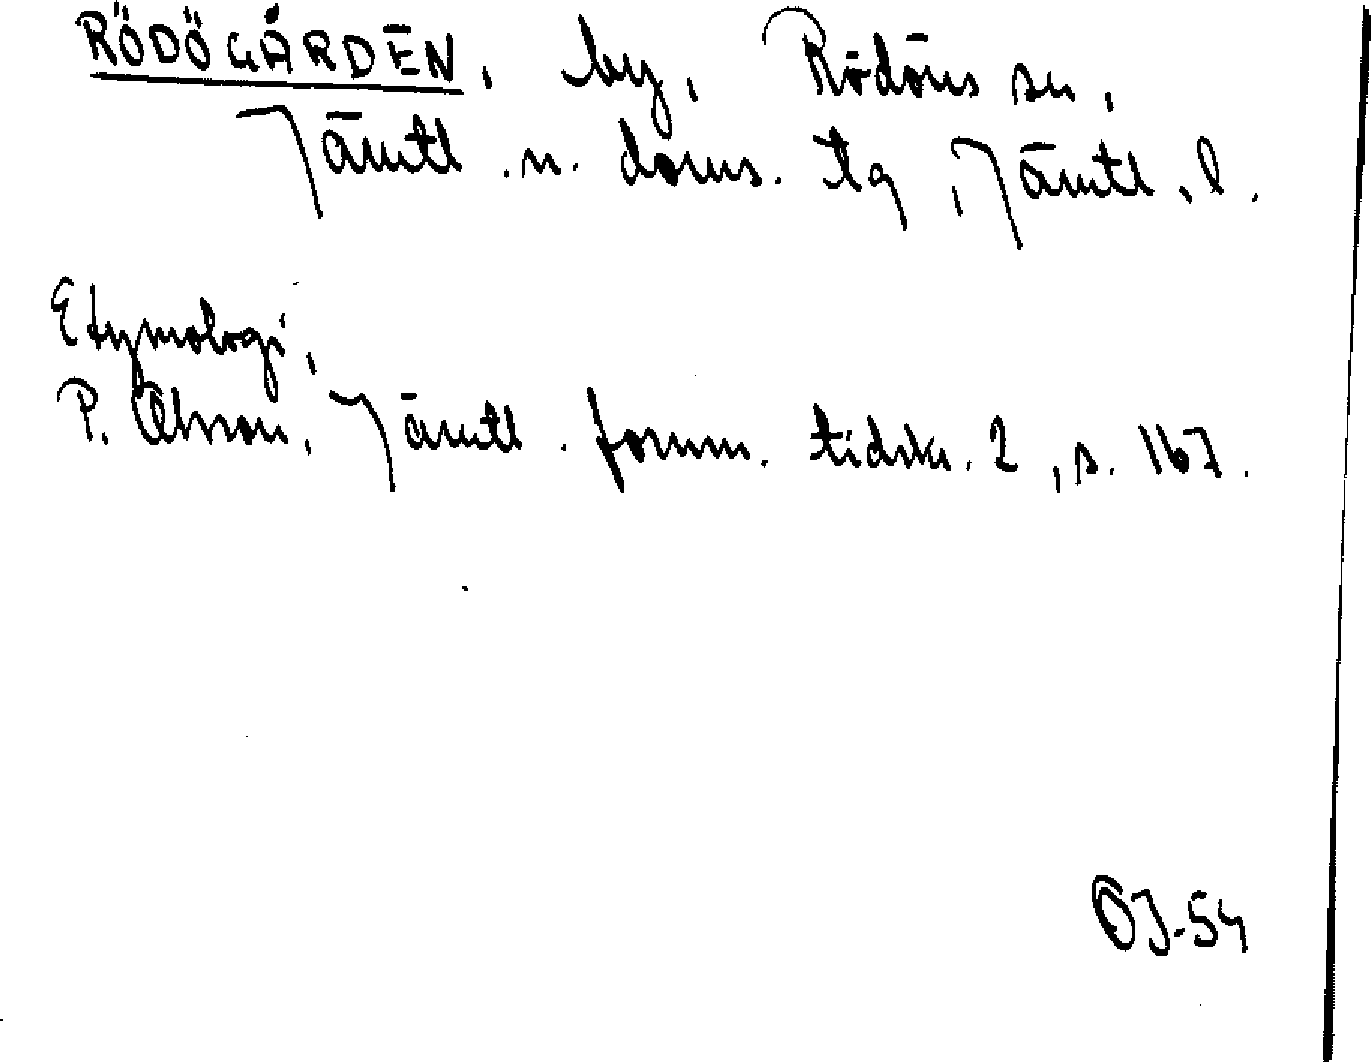 RÖDÖGÅRDEN, by, Rödöns sn,
Jämtl. n. doms. tg, Jämtl. l.
Etymologi,
P. Olsson, Jämtl. fornm. tidskr. 2, s. 167.
OJ-54